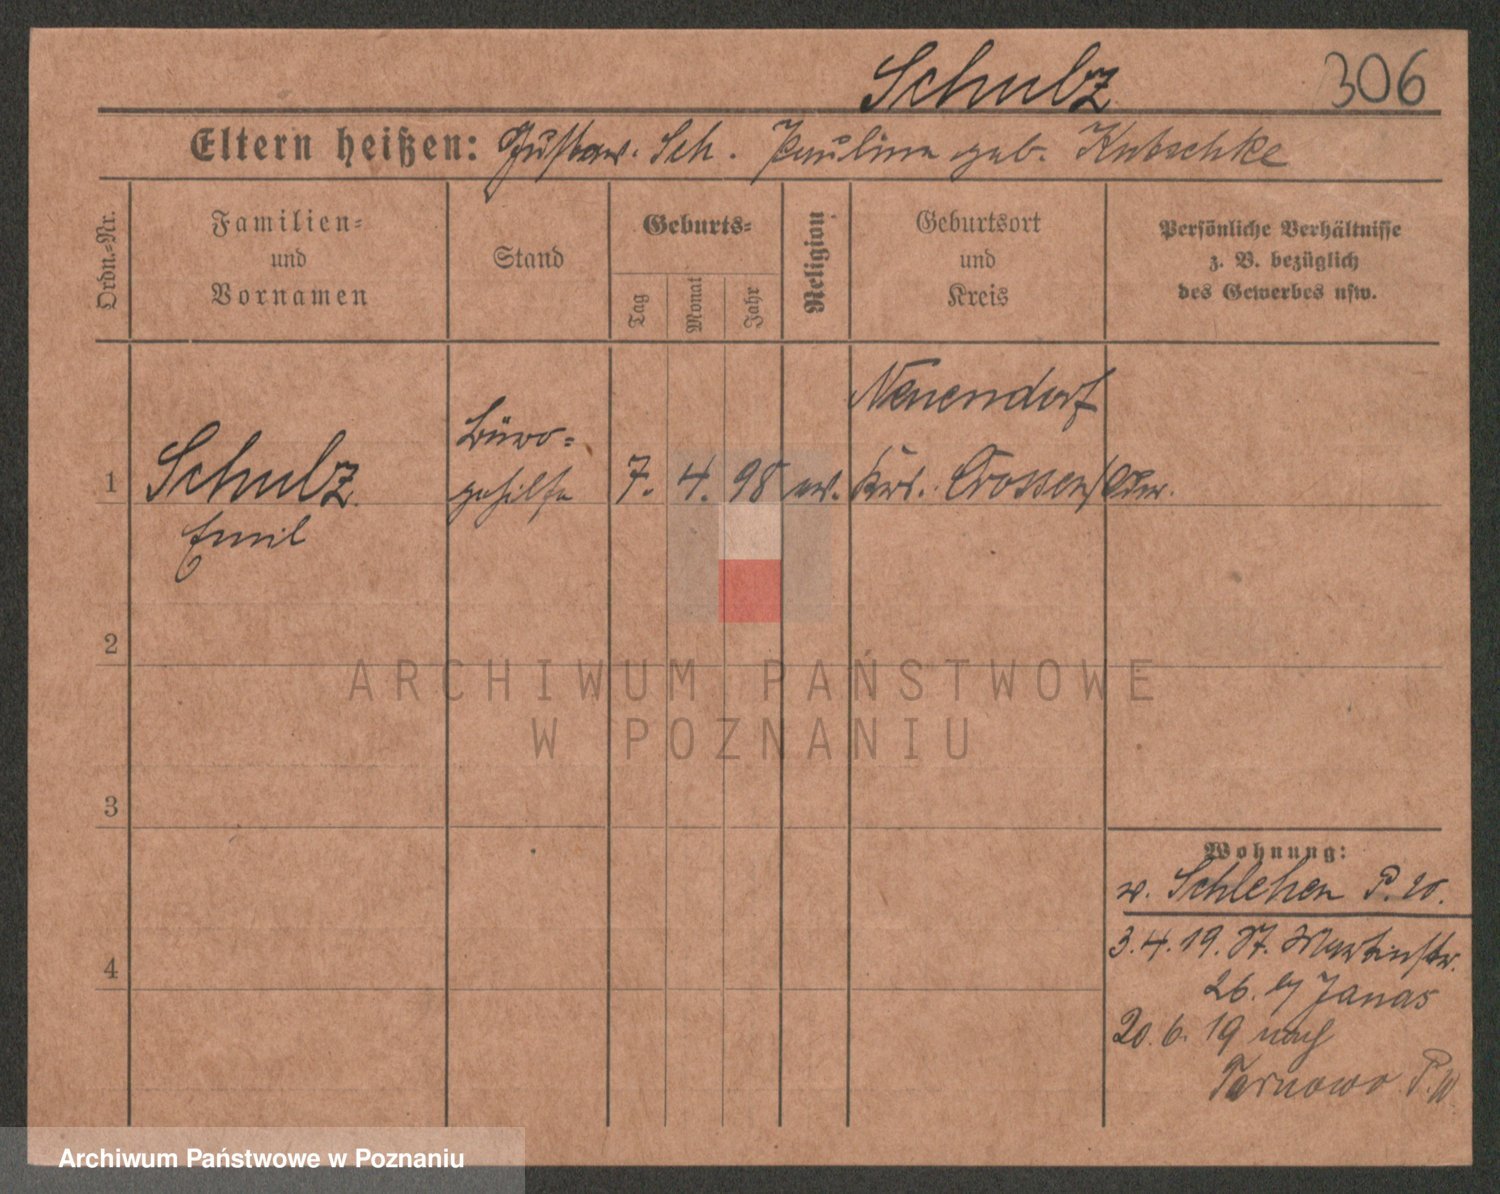 Schulz 306
Eltern heißen: Gustav. Sch. Pauline geb. Kutschke
Ordn.-Nr.
Familien-
und
Vornamen
Stand
Geburts-
Tag
Monat
Jahr
Religion
Geburtsort
und
Kreis
Persönliche Verhältnisse
z. B. bezüglich
des Gewerbes usw.
1
Schulz
Emil
Büro-
gehilfe
7. 4. 98 ev.
Neuendorf
Krs. Crossen/Oder.
2
3
4
ARCHIWUM PAŃSTWOWE
W POZNANIU
Wohnung:
v. Schlehen P. W.
3. 4. 19. St. Martinstr.
26. Janas
20. 6. 19 nach
Tarnowo P. W
Archiwum Państwowe w Poznaniu